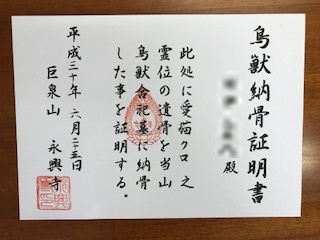 鳥獣納骨証明書
殿
此処に愛猫クロ之
霊位の遺骨を当山
鳥獣合祀墓に納骨
した事を証明する。
平成三十年 六月二十五日
巨泉山 永興寺